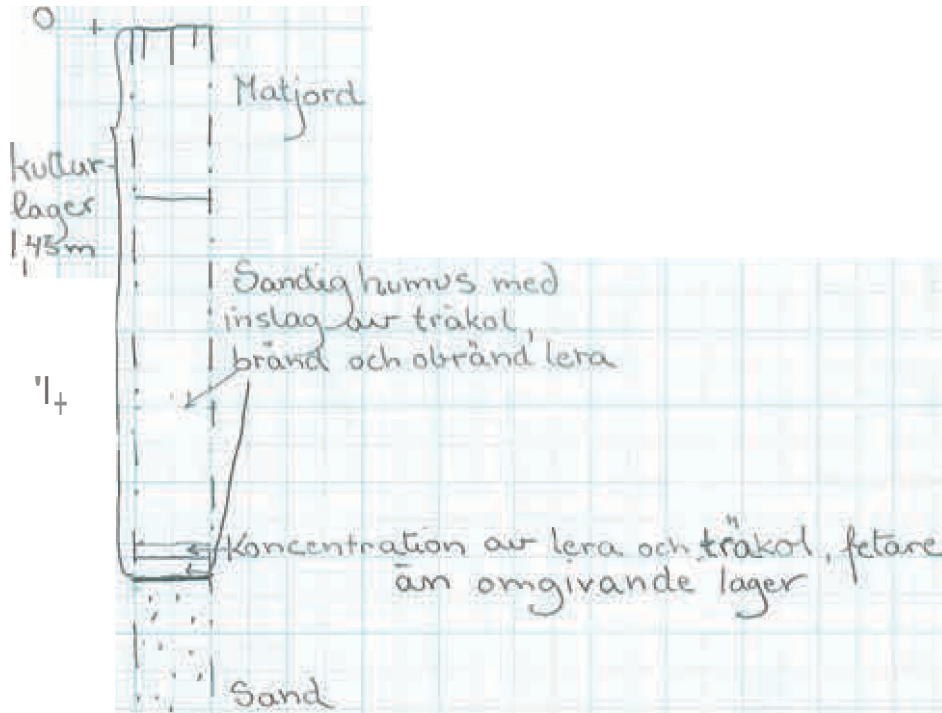 0
Matjord
kultur-
lager
1,45m
Sandig humus med
inslag av träkol,
bränd och obränd lera
1
Koncentration av lera och träkol, fetare
än omgivande lager
Sand